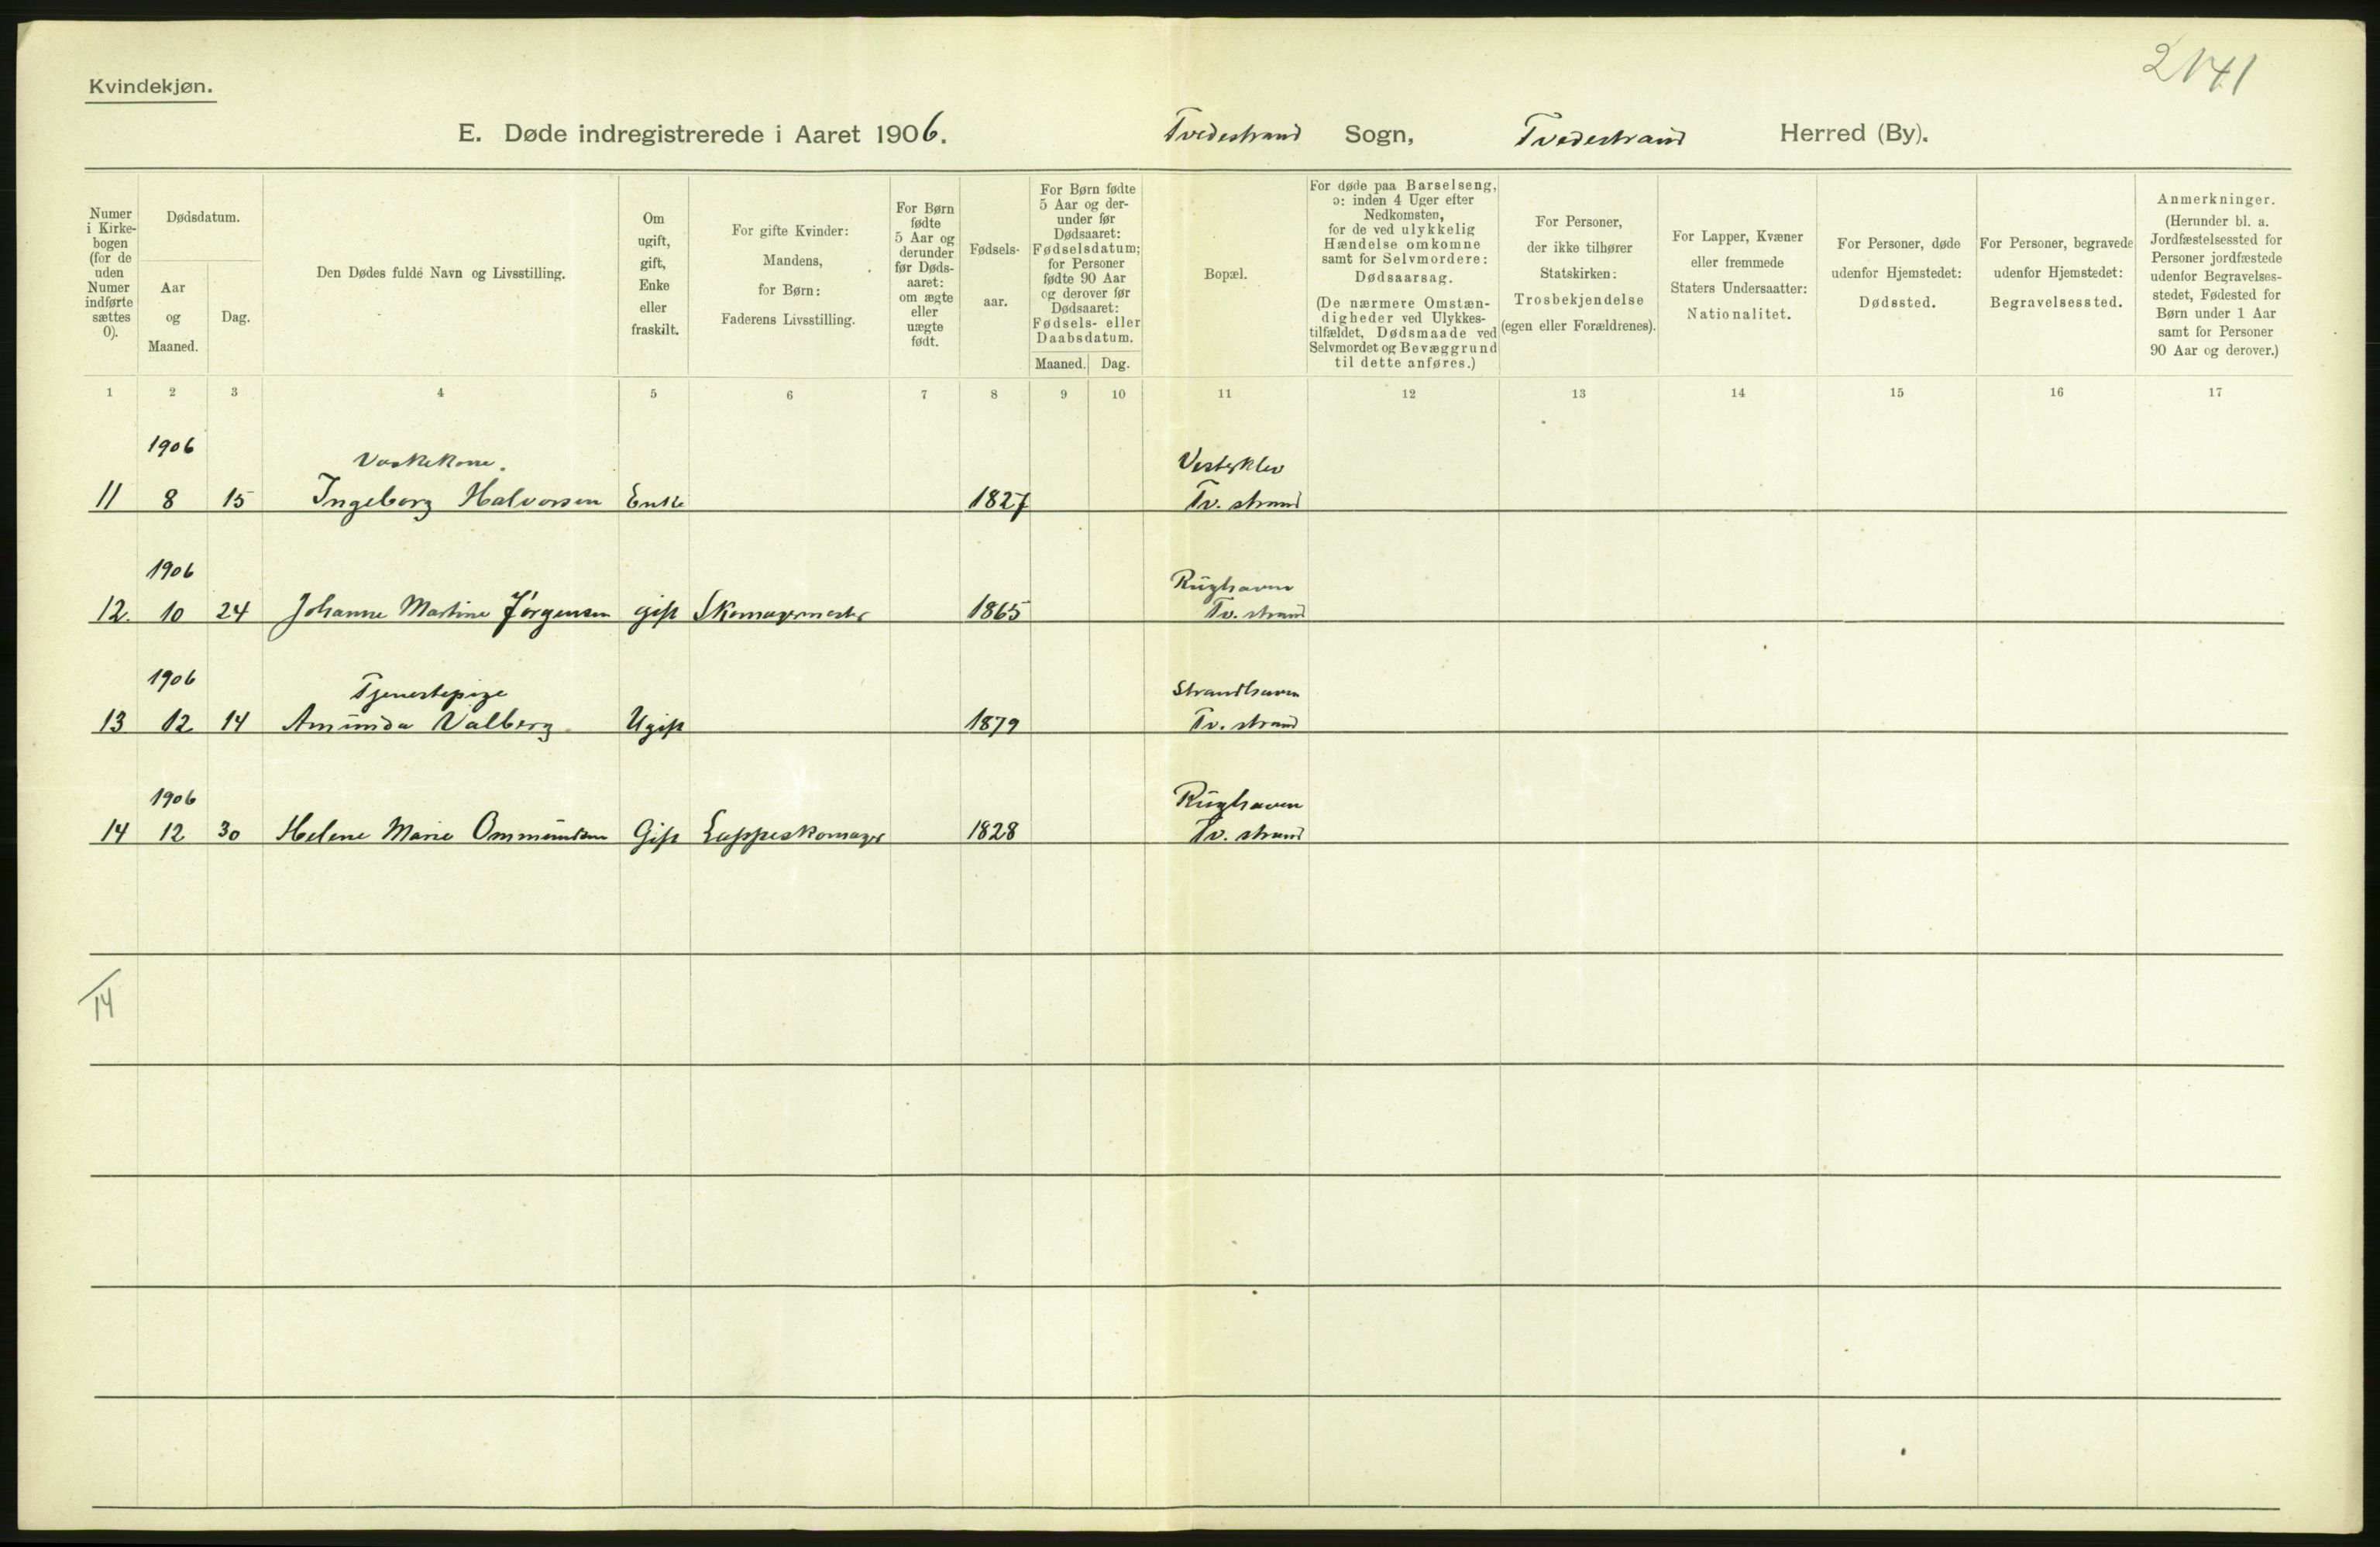 2141
Kvindekjøn.
E. Døde indregistrerede i Aaret 1906. Tvedestrand Sogn, Tvedestrand Herred (By).
Numer i Kirke-bogen (for de uden Numer indførte sættes 0).
Dødsdatum.
Aar og Maaned.
Dag.
Den Dødes fulde Navn og Livsstilling.
Om ugift, gift, Enke eller fraskilt.
For gifte Kvinder: Mandens, for Børn: Faderens Livsstilling.
For Børn fødte 5 Aar og derunder før Døds-aaret: om ægte eller uægte født.
Fødsels-aar.
For Børn fødte 5 Aar og der-under før Dødsaaret: Fødselsdatum; for Personer fødte 90 Aar og derover før Dødsaaret: Fødsels- eller Daabsdatum.
Maaned. Dag.
Bopæl.
For døde paa Barselseng, ɔ: inden 4 Uger efter Nedkomsten, for de ved ulykkelig Hændelse omkomne samt for Selvmordere: Dødsaarsag.
(De nærmere Omstæn-digheder ved Ulykkes-tilfældet, Dødsmaade ved Selvmordet og Bevæggrund til dette anføres.)
For Personer, der ikke tilhører Statskirken: Trosbekjendelse (egen eller Forældrenes).
For Lapper, Kvæner eller fremmede Staters Undersaatter: Nationalitet.
For Personer, døde udenfor Hjemstedet: Dødssted.
For Personer, begravede udenfor Hjemstedet: Begravelsessted.
Anmerkninger. (Herunder bl. a. Jordfæstelsessted for Personer jordfæstede udenfor Begravelses-stedet, Fødested for Børn under 1 Aar samt for Personer 90 Aar og derover.)
1 2 3 4 5 6 7 8 9 10 11 12 13 14 15 16 17
1906 Vaskekone. Vesterklev
11 8 15 Ingeborg Halvorsen Enke 1827 Tv. strand
1906
12. 10 24 Johanne Martine Jørgensen gift Skomagermester 1865 Tv. strand
1906 Tjenestepige Strandhaven
13 12 14 Amunda Valberg Ugift 1879 Tv. strand
1906
14 12 30 Helene Marie Ommundsen Gift Lappeskomager 1828 Tv. strand
14